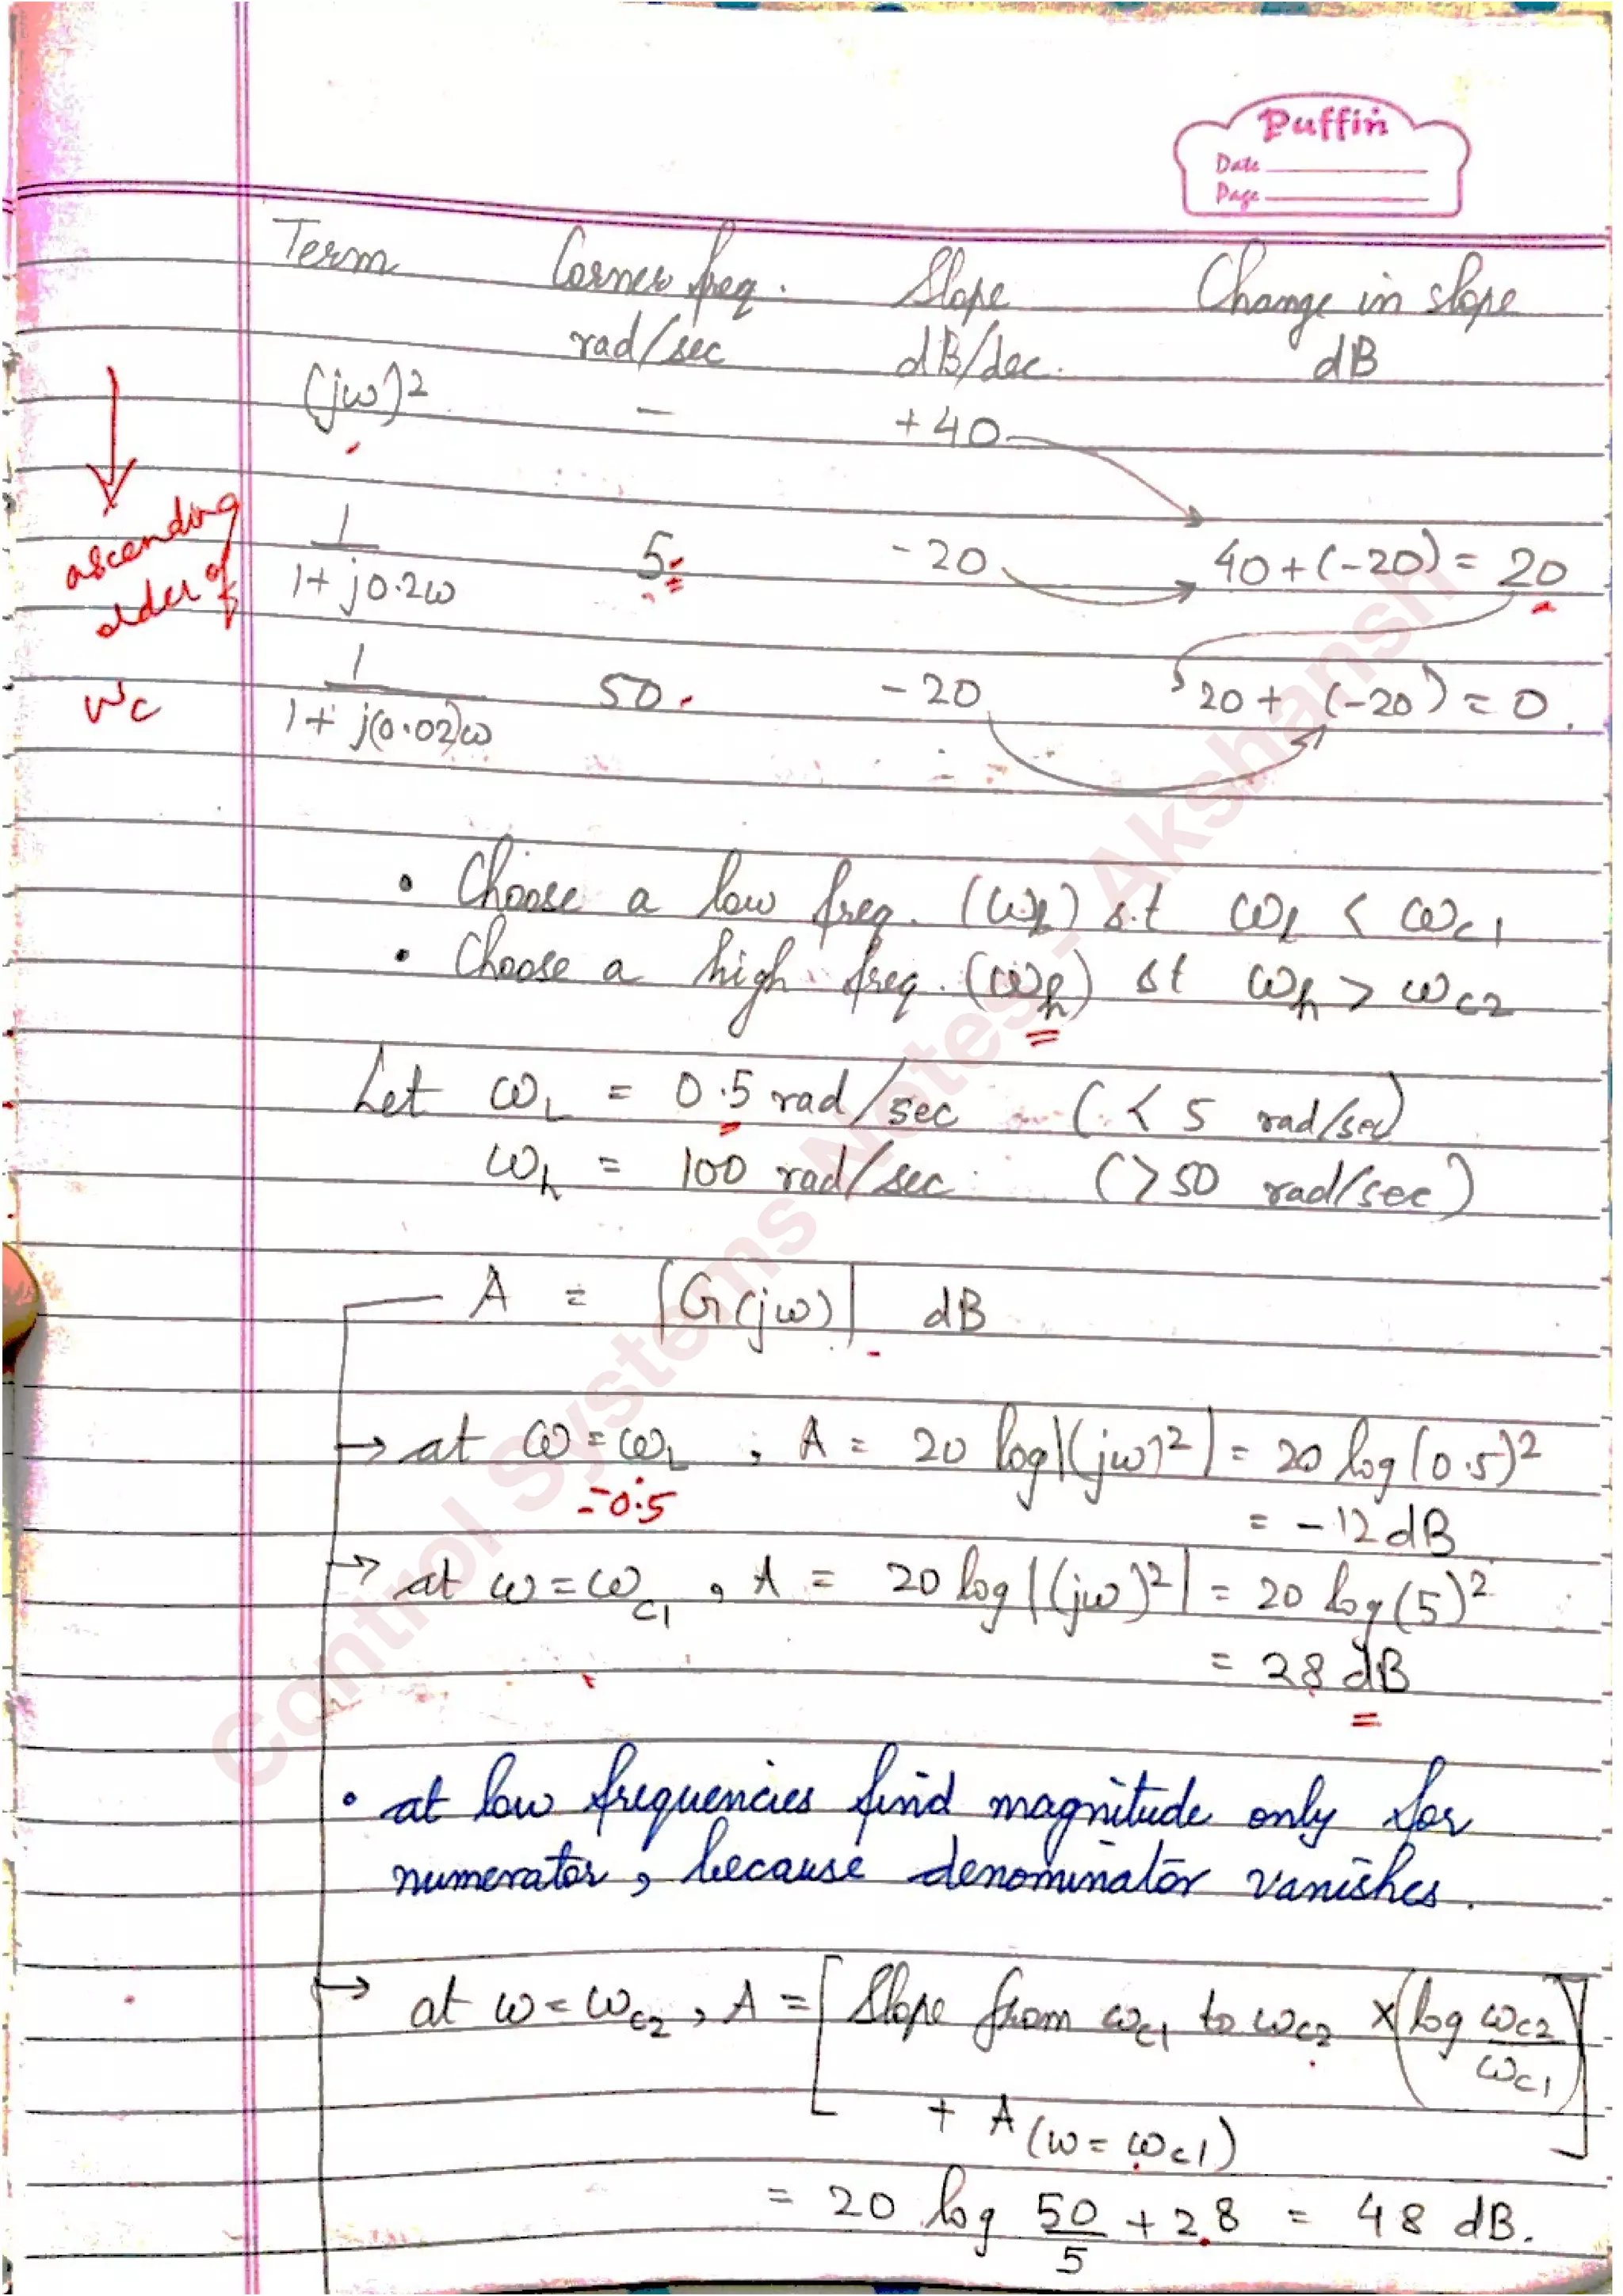 Puffin
Date
Page
Term Corner freq. Slope Change in slope
rad/sec dB/dec. dB
(jω)² - +40
1/(1+j0.2ω) 5 -20 40+(-20) = 20
1/(1+j(0.02)ω) 50 -20 20+(-20) = 0.
ascending
order of
ωc
• Choose a low freq. (ωl) s.t ωl < ωc1
• Choose a high freq. (ωh) st ωh > ωc2
Let ωL = 0.5 rad/sec (< 5 rad/sec)
ωh = 100 rad/sec (>50 rad/sec)
A = |G(jω)| dB
→ at ω=ωL , A = 20 log|(jω)²| = 20 log(0.5)²
=0.5
= -12 dB
→ at ω=ωc1 , A = 20 log|(jω)²| = 20 log(5)²
= 28 dB
• at low frequencies find magnitude only for
numerator, because denominator vanishes.
→ at ω=ωc2 , A = [Slope from ωc1 to ωc2 × (log ωc2/ωc1)
+ A(ω=ωc1)]
= 20 log 50/5 + 28 = 48 dB.
Control Systems Notes - Akshansh